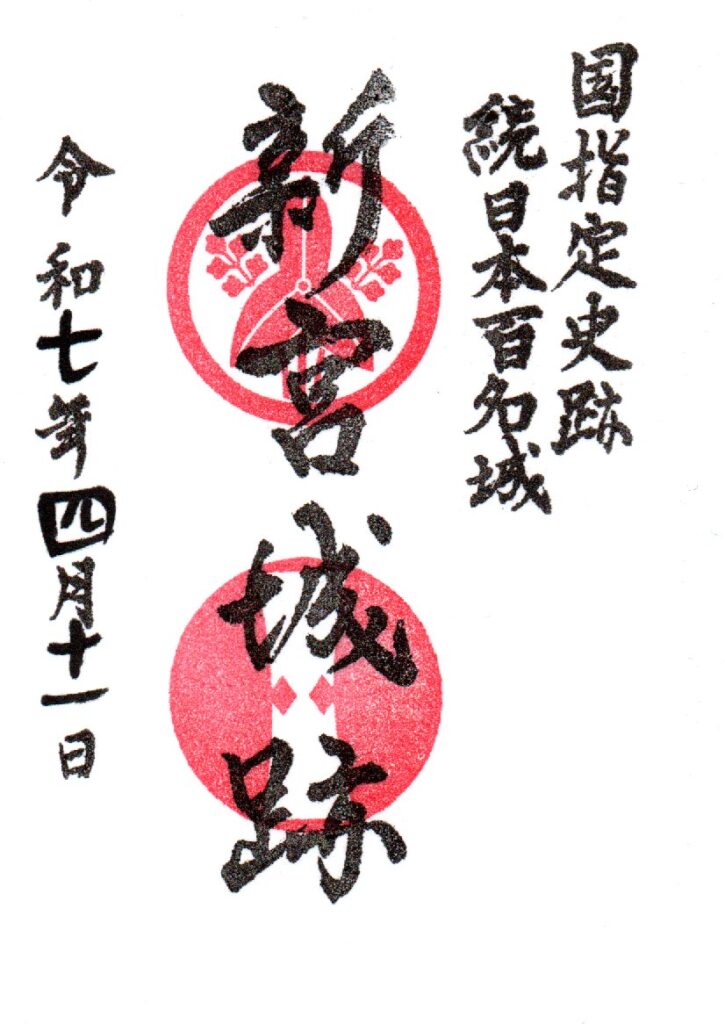 国指定史跡
続日本百名城
新宮城跡
令和七年四月十一日